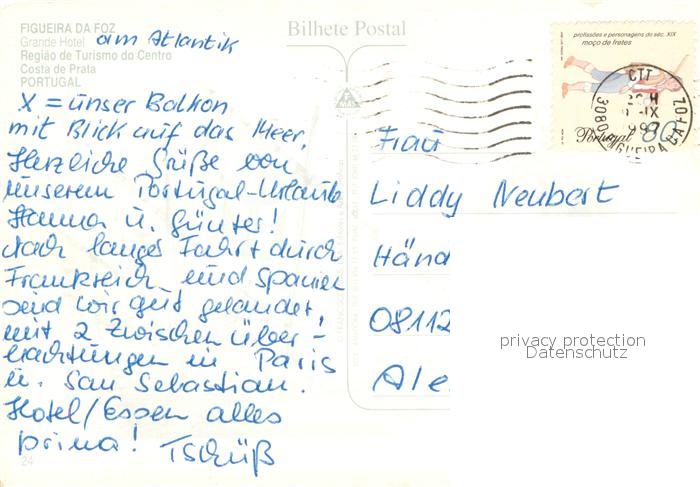 FIGUEIRA DA FOZ
Grande Hotel am Atlantik
Região de Turismo do Centro
Costa de Prata
PORTUGAL
Bilhete Postal
X = unser Balkon
mit Blick auf das Meer.
Herzliche Grüße von
unserem Portugal-Urlaub
Hanna u. Günter!
Nach langer Fahrt durch
Frankreich und Spanien
sind wir gut gelandet,
mit 2 Zwischenüber-
nachtungen in Paris
u. San Sebastian.
Hotel/Essen alles
prima! Tschüß
24
profissões e personagens do séc. XIX
moço de fretes
Portugal 80
CTT
3080 FIGUEIRA DA FOZ
Frau
Liddy Neubert
Händ
08112
Ale
privacy protection
Datenschutz